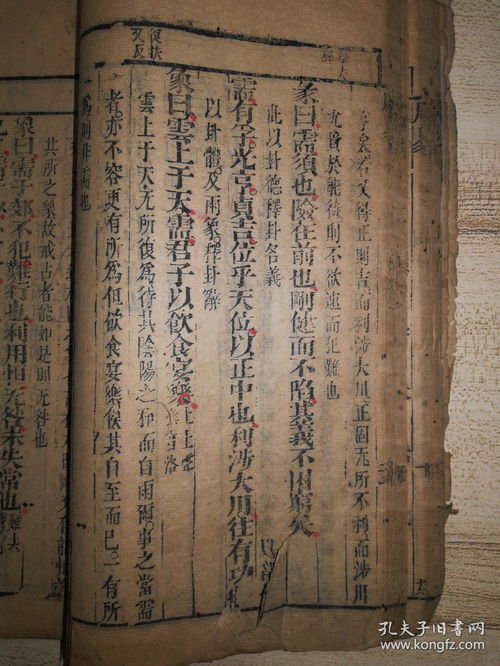 亨矣若又得正則吉而利涉大川正固无所不利而涉川
尤貴於能待則不欲速而犯難也
彖曰需須也險在前也剛健而不陷其義不困窮矣
此以卦德釋卦名義
需有孚光亨貞吉位乎天位以正中也利涉大川往有功
以卦體及兩象釋卦辭
象曰雲上于天需君子以飲食宴樂上上聲
雲上于天无所復為待其陰陽之和而自雨爾事之當需
者亦不容更有所為但飲食宴樂俟其自至而已一有所
為則非需也
復扶
又反
其所之象故戒占者能如是則无咎也
象曰需于郊不犯難行也利用恒无咎未失常也難去
孔夫子旧书网
www.kongfz.com